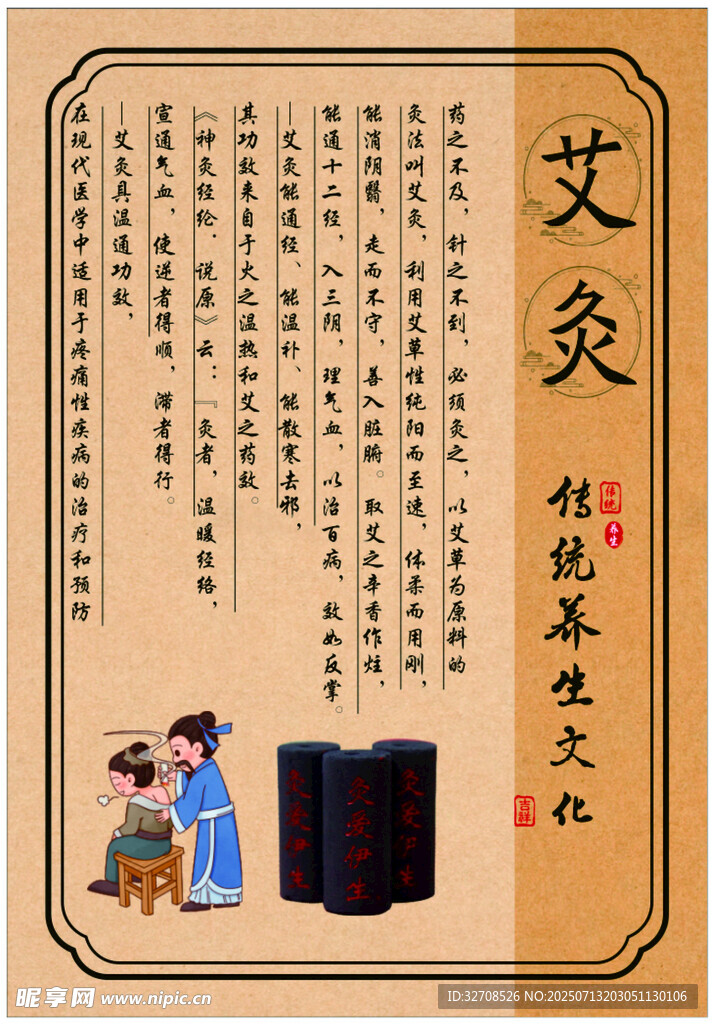 艾灸
传统养生文化
传统
养生
吉祥
药之不及，针之不到，必须灸之，以艾草为原料的
灸法叫艾灸，利用艾草性纯阳而至速，体柔而用刚，
能消阴翳，走而不守，善入脏腑。取艾之辛香作炷，
能通十二经，入三阴，理气血，以治百病，效如反掌。
—艾灸能通经、能温补、能散寒去邪，
其功效来自于火之温热和艾之药效。
《神灸经纶·说原》云：『灸者，温暖经络，
宣通气血，使逆者得顺，滞者得行。
—艾灸具温通功效，
在现代医学中适用于疼痛性疾病的治疗和预防
灸爱伊生
灸爱伊生
灸爱伊生
昵享网 www.nipic.cn
ID:32708526 NO:20250713203051130106